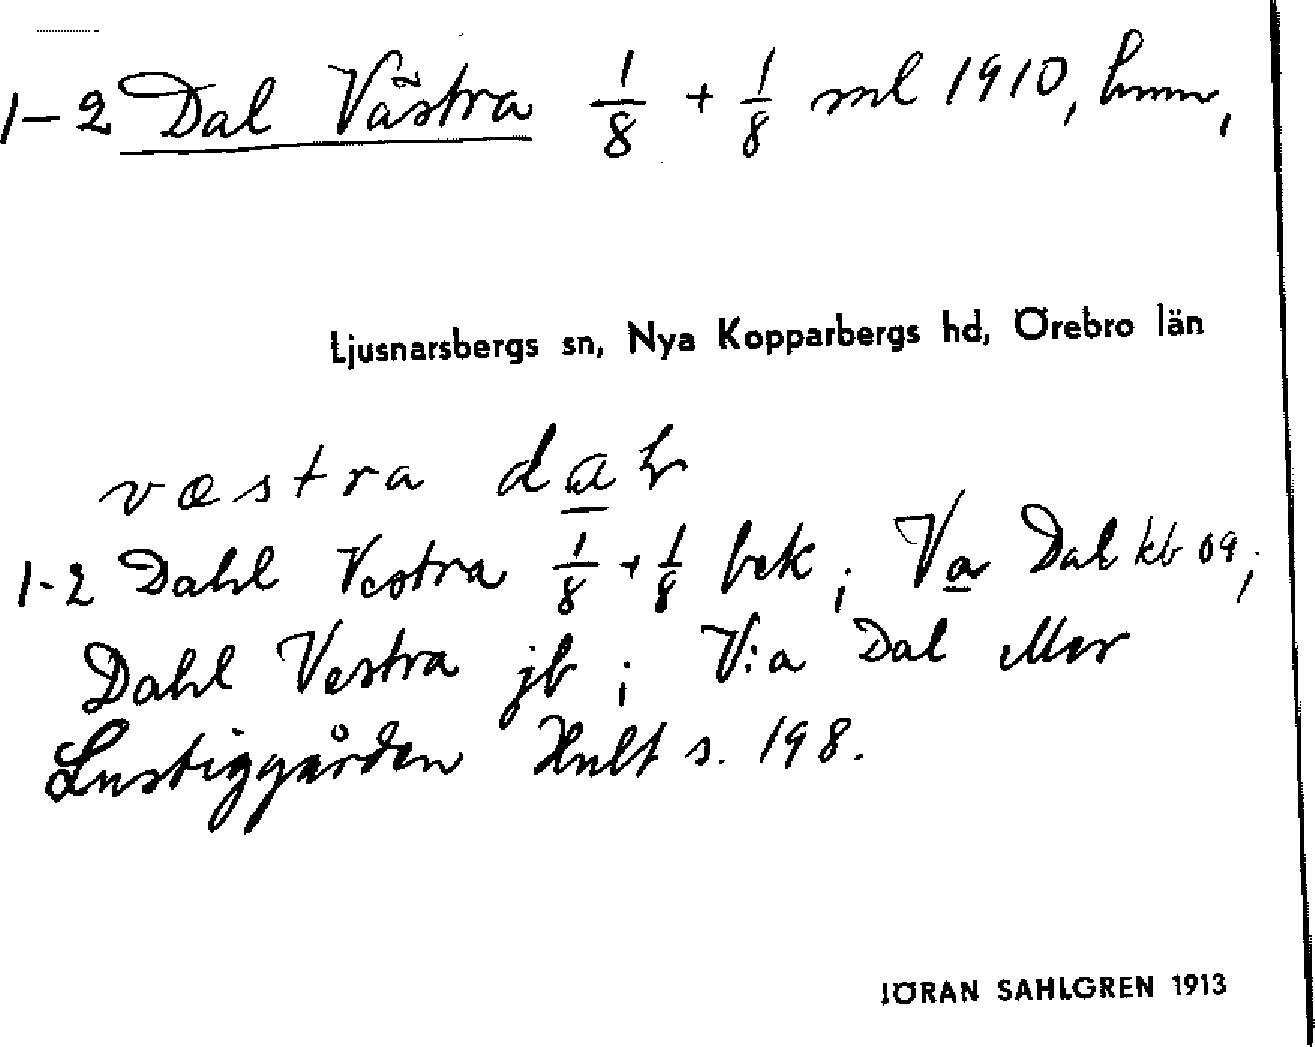 1-2 Dal Västra 1/8 + 1/8 ml 1910, hmn,
Ljusnarsbergs sn, Nya Kopparbergs hd, Örebro län
væstra dal
1-2 Dahl Vestra 1/8 + 1/8 bek; Va Dal kb 09;
Dahl Vestra jb; V:a Dal
Lustiggården Hult s. 198.
JÖRAN SAHLGREN 1913